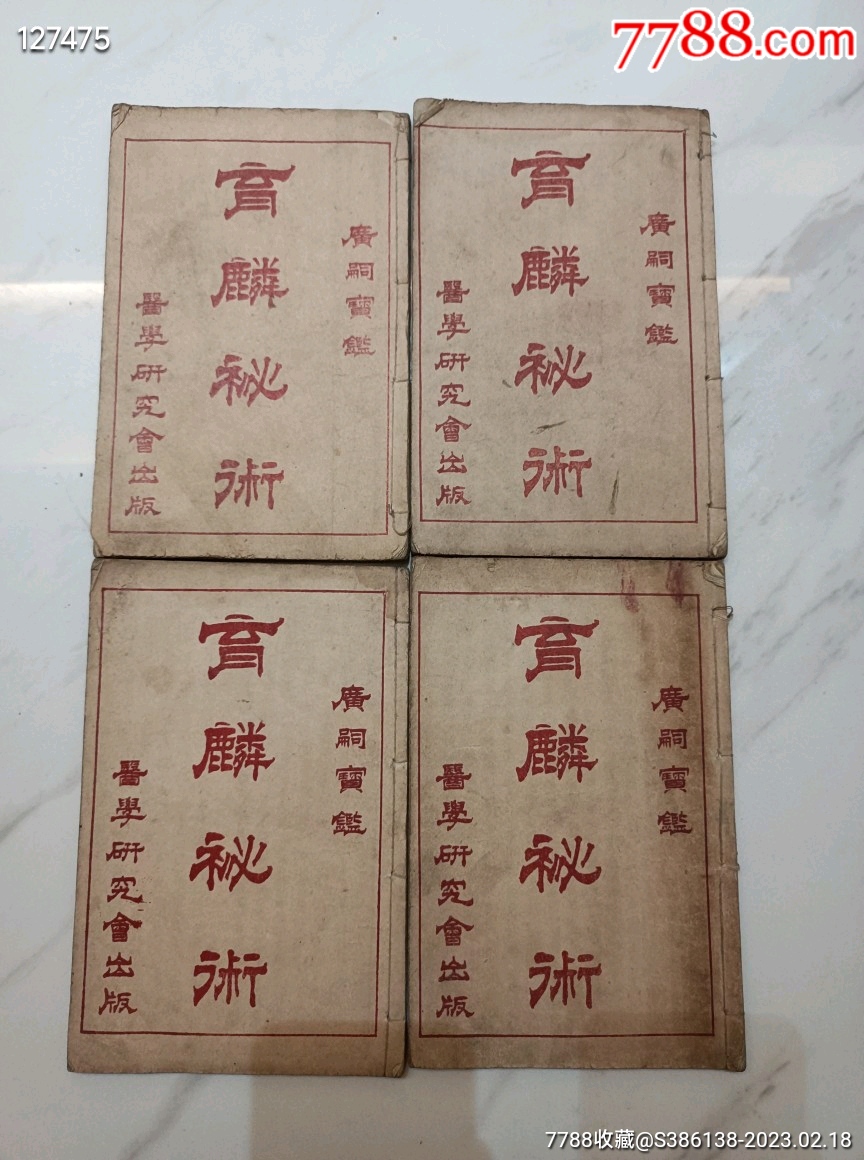 127475
7788.com
廣嗣寶鑑
育麟祕術
醫學研究會出版
廣嗣寶鑑
育麟祕術
醫學研究會出版
廣嗣寶鑑
育麟祕術
醫學研究會出版
廣嗣寶鑑
育麟祕術
醫學研究會出版
7788收藏@S386138-2023.02.18